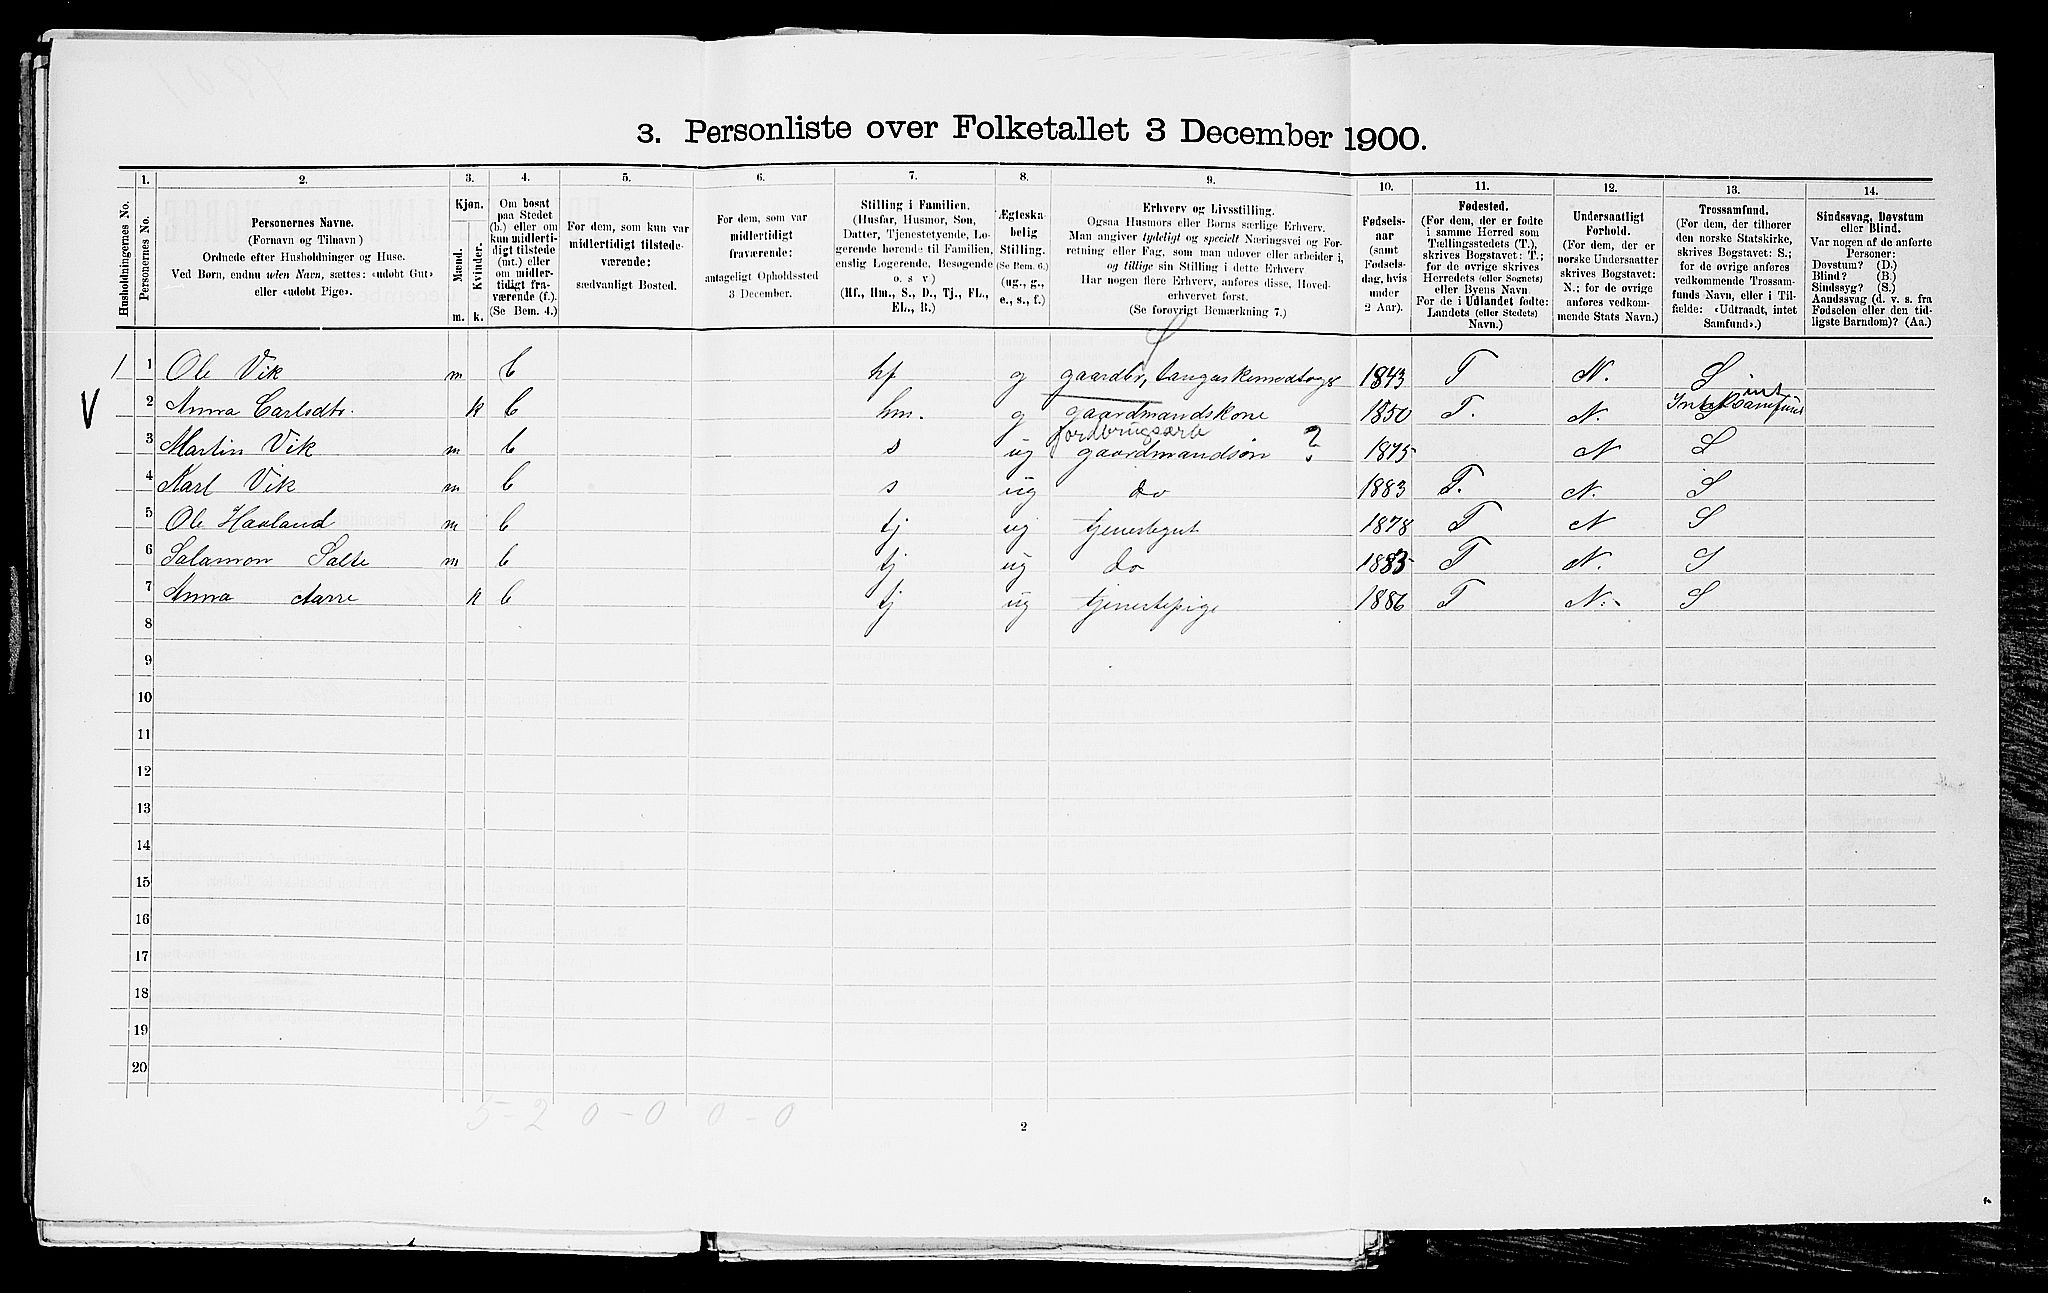 3. Personliste over Folketallet 3 December 1900.
Husholdningernes No.
1.
Personernes No.
2.
Personernes Navne.
(Fornavn og Tilnavn)
Ordnede efter Husholdninger og Huse.
Ved Børn, endnu uden Navn, sættes: «udøbt Gut»
eller «udøbt Pige».
3.
Kjøn.
Mænd.
Kvinder.
m. k.
4.
Om bosat
paa Stedet
(b.) eller om
kun midlerti-
digt tilstede
(mt.) eller
om midler-
tidigt fra-
værende (f.).
(Se Bem. 4.)
5.
For dem, som kun var
midlertidigt tilstede-
værende:
sædvanligt Bosted.
6.
For dem, som var
midlertidigt
fraværende:
antageligt Opholdssted
3 December.
7.
Stilling i Familien.
(Husfar, Husmor, Søn,
Datter, Tjenestetyende, Lo-
gerende hørende til Familien,
enslig Logerende, Besøgende
o. s v)
(Hf., Hm., S., D., Tj., FL.,
EL., B.)
8.
Ægteska-
belig
Stilling.
(Se Bem. 6.)
(ug., g.,
e., s., f.)
9.
Erhverv og Livsstilling.
Ogsaa Husmors eller Børns særlige Erhverv.
Man angiver tydeligt og specielt Næringsvei og For-
retning eller Fag, som man udøver eller arbeider i,
og tillige sin Stilling i dette Erhverv
Har nogen flere Erhverv, anføres disse, Hoved-
erhvervet først.
(Se forøvrigt Bemærkning 7.)
10.
Fødsels-
aar
(samt
Fødsels-
dag, hvis
under
2 Aar).
11.
Fødested.
(For dem, der er fødte
i samme Herred som
Tællingsstedets (T.),
skrives Bogstavet: T.;
for de øvrige skrives
Herredets (eller Sognets)
eller Byens Navn
For de i Udlandet fødte:
Landets (eller Stedets)
Navn.)
12.
Undersaatligt
Forhold.
(For dem, der er
norske Undersaatter
skrives Bogstavet:
N.; for de øvrige
anføres vedkom-
mende Stats Navn.)
13.
Trossamfund.
(For dem, der tilhører
den norske Statskirke,
skrives Bogstavet: S.;
for de øvrige anføres
vedkommende Trossam-
funds Navn, eller i Til-
fælde: «Udtraadt, intet
Samfund».)
14.
Sindssvag, Døvstum
eller Blind.
Var nogen af de anførte
Personer:
Døvstum? (D.)
Blind? (B.)
Sindssyg? (S.)
Aandssvag (d. v. s. fra
Fødselen eller den tid-
ligste Barndom)? (Aa.)
1 1 Ole Vik m b hf g gaardbr, 1843 T N. S
V 2 Anna Carlsdtr. k b hm. g gaardmandskone 1850 T. N.
jordbrugsarb
3 Martin Vik m b s ug gaardmandsøn ? 1875 N S
4 Karl Vik m b s ug do 1883 T. N. S
5 Ole Haaland m b tj ug tjenestegut 1878 T N S
6 Salamon Salte m b tj ug do 1883 T N. S
7 Anna Aarre k b tj ug tjenestepige 1886 T N. S
8
9
10
11
12
13
14
15
16
17
18
19
20
5-2 0-0 0-0
2